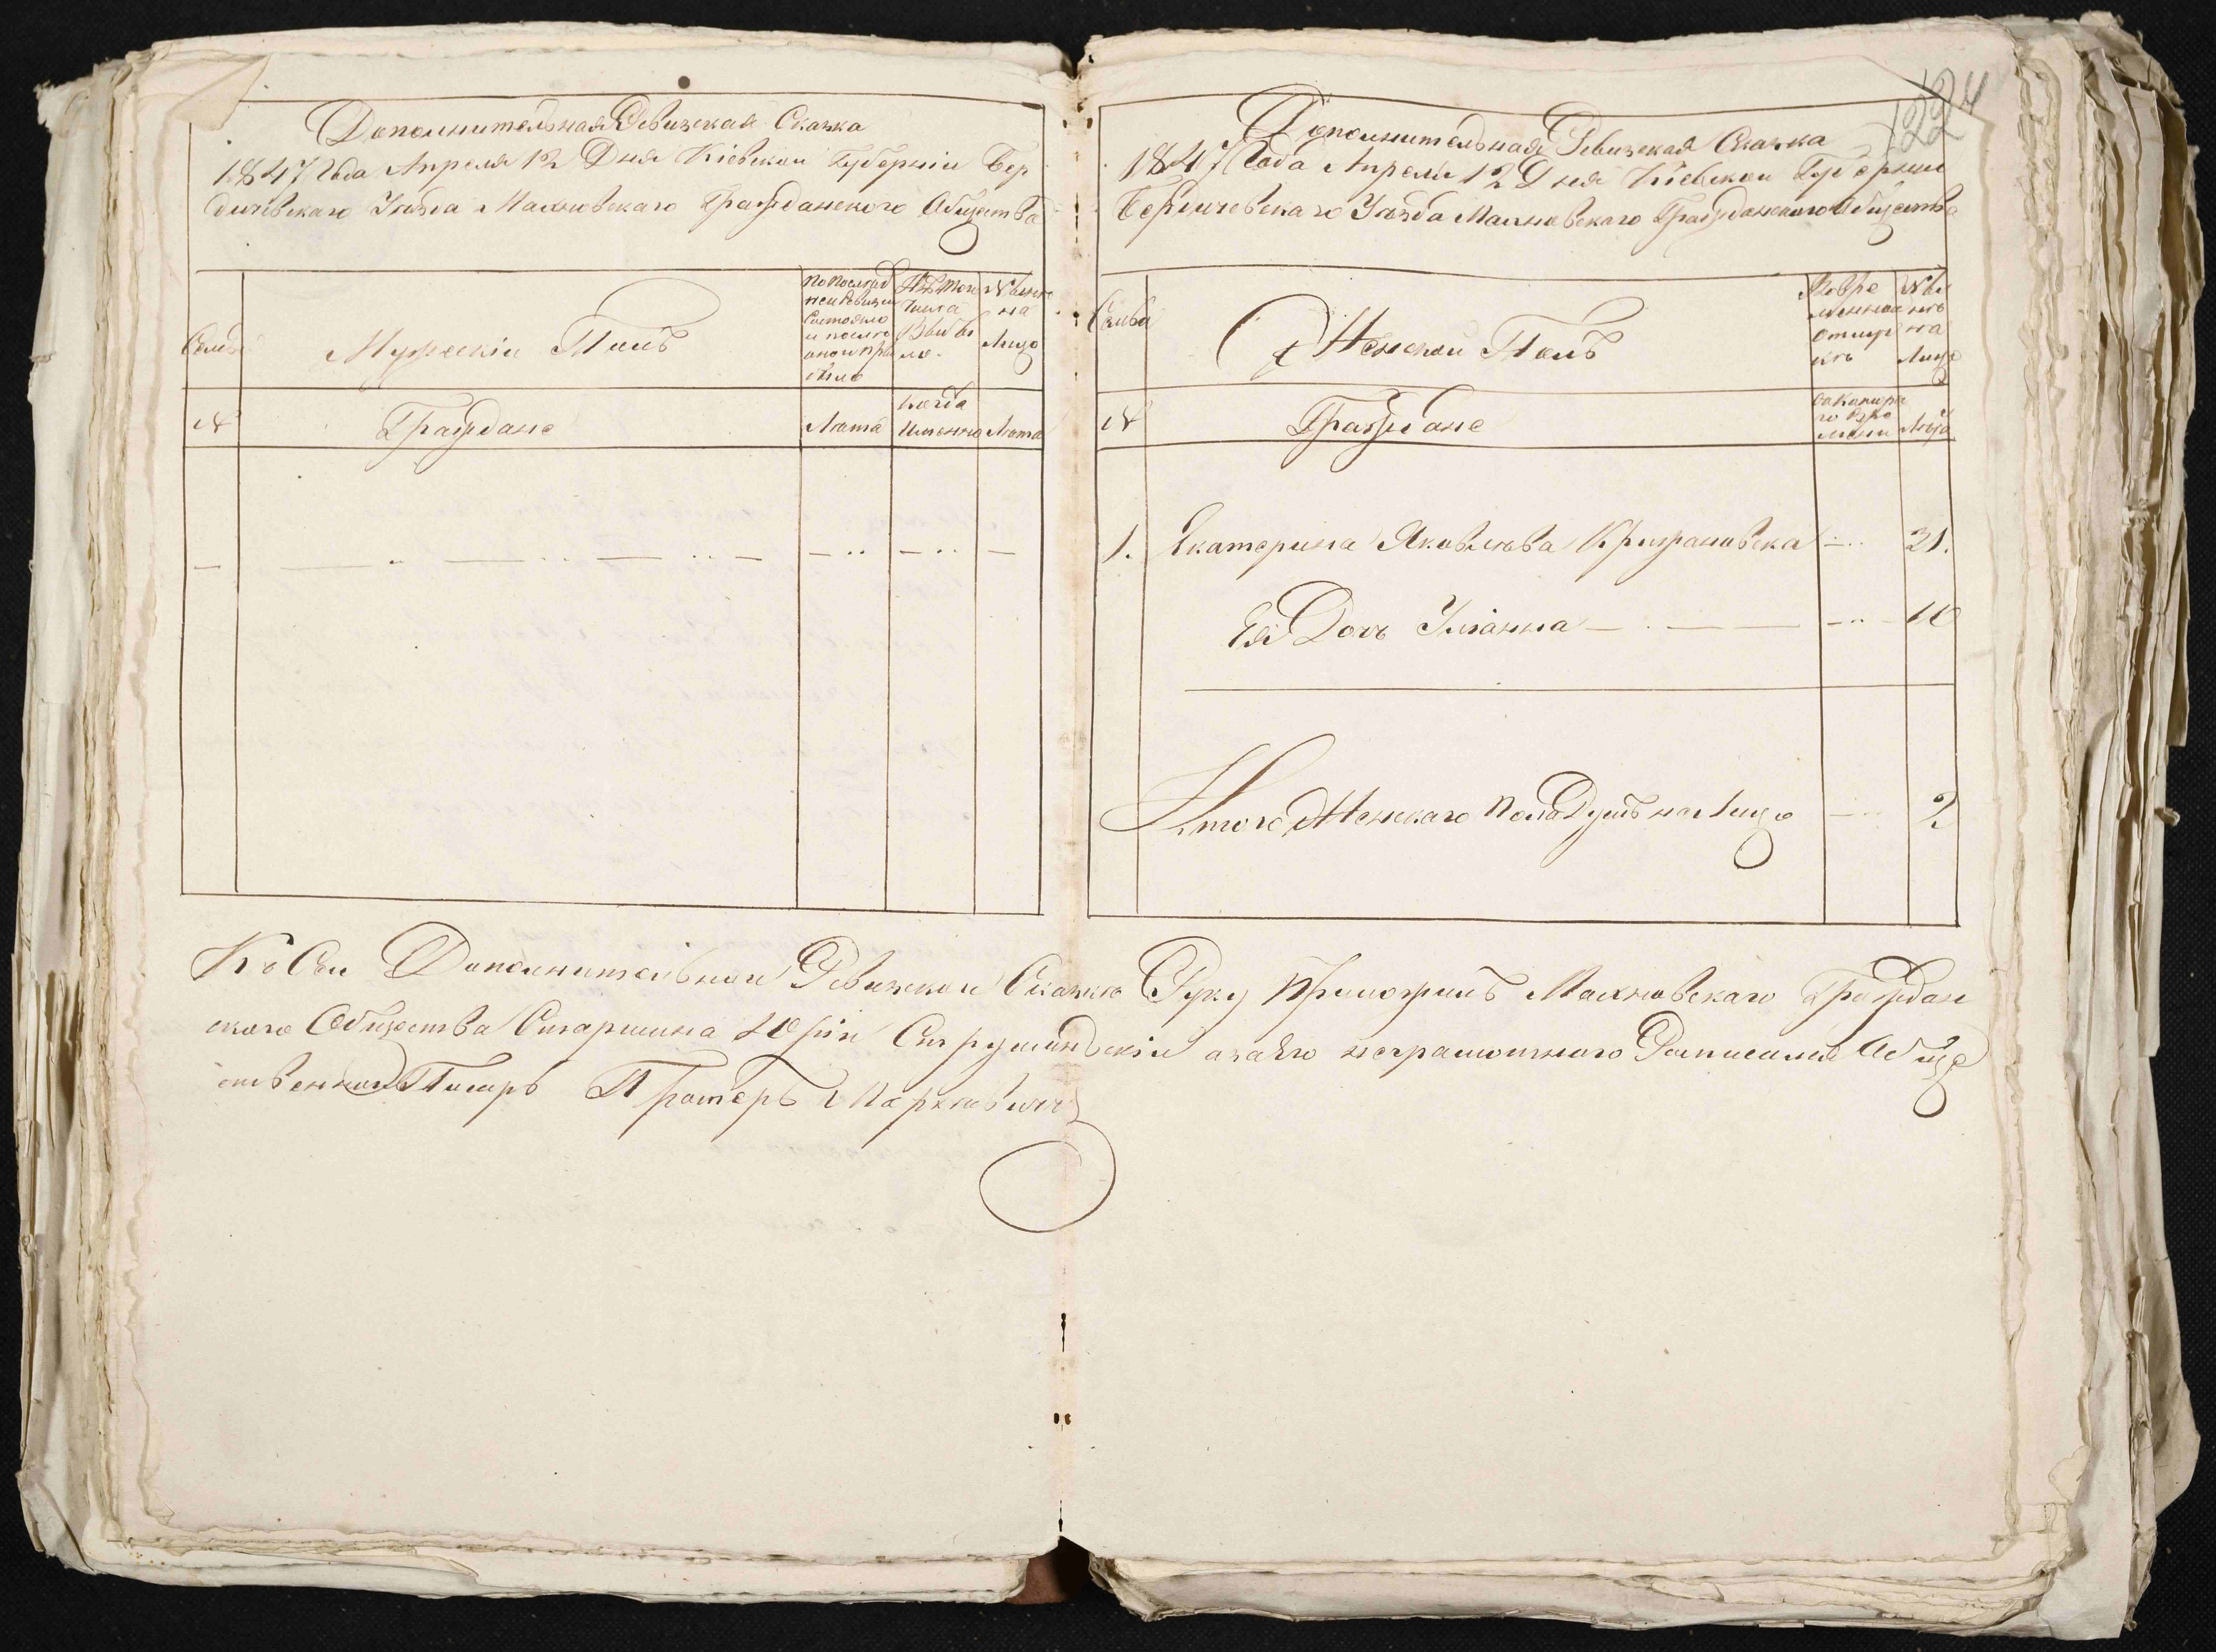 Дополнительная Ревизская Сказка
1847 Года Апреля 12 Дня Кіевской Губерніи Бер
дичевскаго Уезда Махновскаго Гражданского Общества
Семья
Мужескій Полъ
По послед
ней Ревизіи
состояло
и после
оной при
было
Изъ того
числа
Выбы
ло
Ныне
на
Лицо
№
Граждане
Лета
когда
именно
Лета
1224
Дополнительная Ревизская Сказка
1847 Года Апреля 12 Дня Кіевской Губерніи
Бердичевскаго Уезда Махновскаго Гражданского Общества
Семья
Женской Полъ
Во вре
менной
отлуч
ке
Ныне
на
Лицо
№
Граждане
съ котора
го вре
мени
Лета
1. Екатерина Яковлева 31.
Ея Дочь Уліанна 10
Итого Женскаго Пола Душъ на Лицо 2
Къ Сей Дополнительной Ревизской Сказке Руку Приложилъ Махновскаго Граждан
скаго Общества Старшина Юрій а за его неграмотного Росписался Обще
ственной Писарь